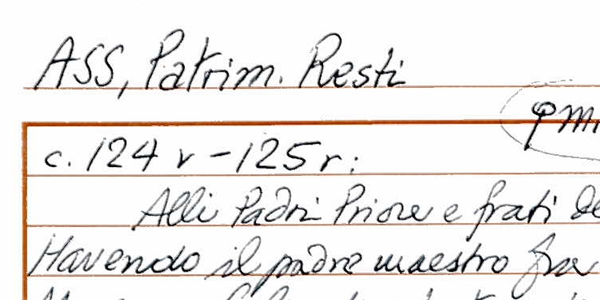 ASS, Patrim. Resti
c. 124 v - 125 r:
Alli Padri Priore e frati
Havendo il padre maestro fra